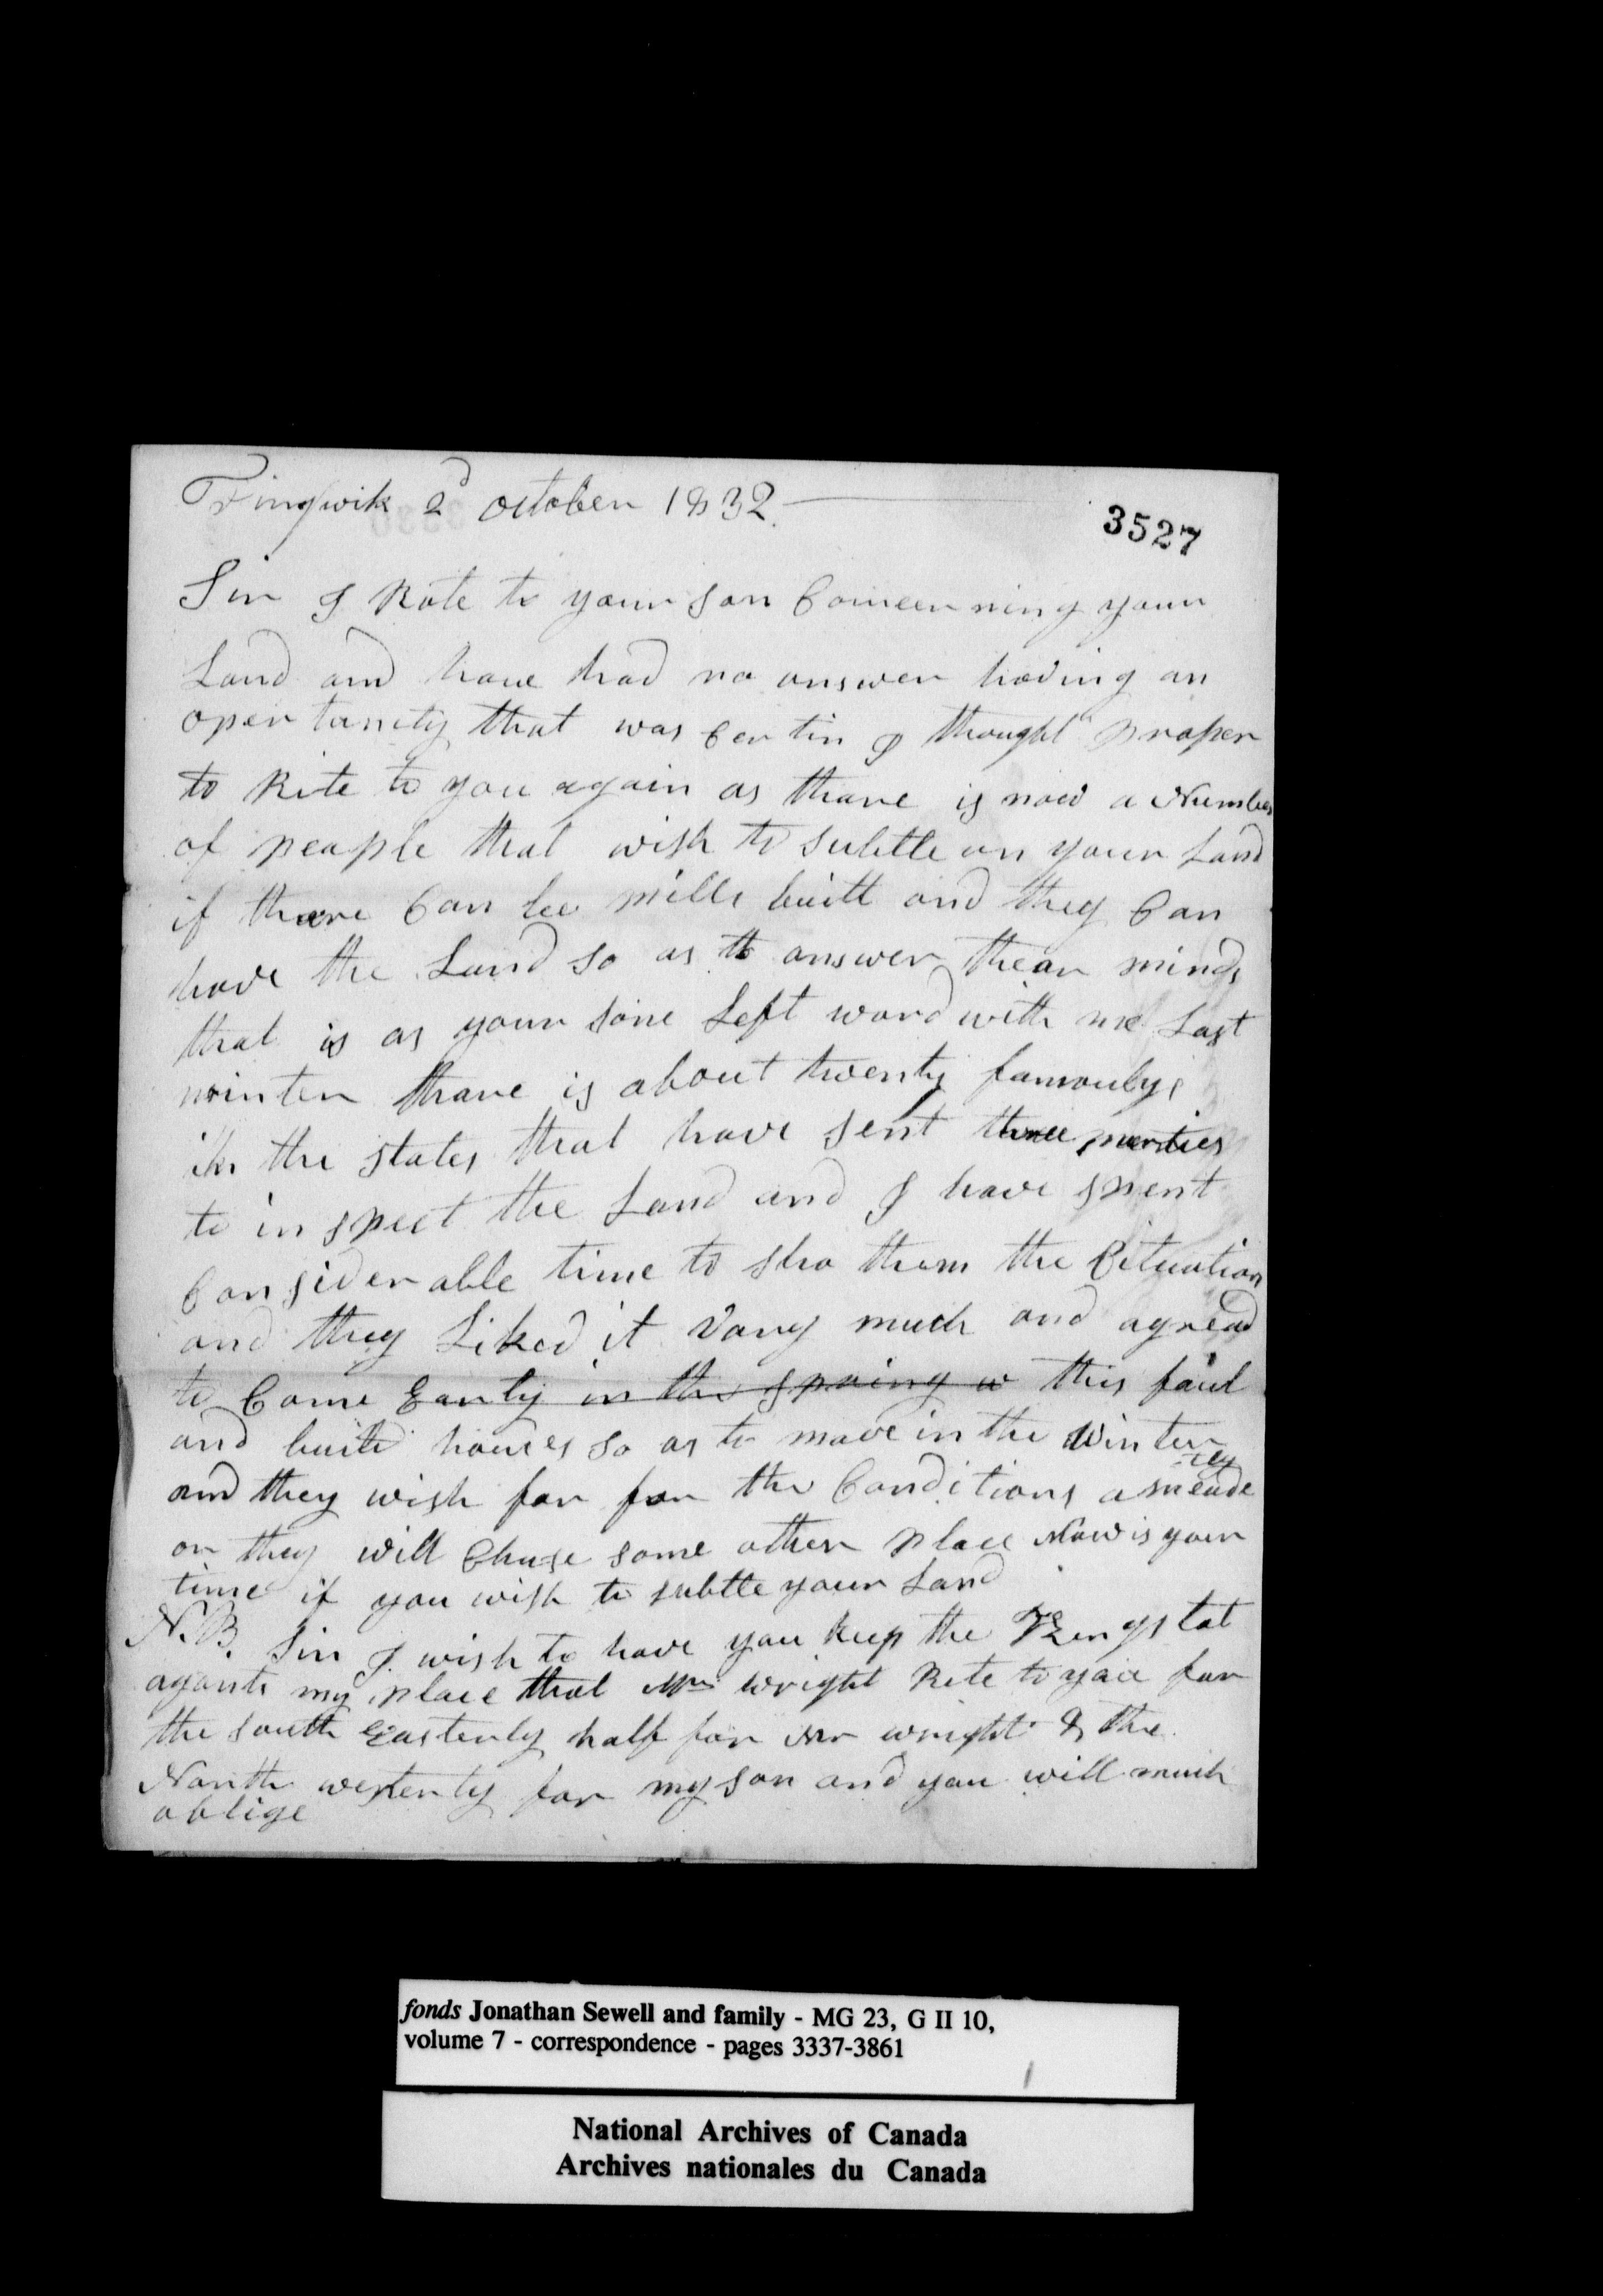 Tingwik 2d october 1832.
3527
Sir I Rote to your son Conceerning your
Land and have had no answer having an
oper tunity that was Certin I thought proper
to Rite to you again as thare is now a Number
of people that wish to subttle on your Land
if thare Can bee mills built and they Can
have the Land so as to answer thear minds
that is as your sone Left word with me Last
winter thare is about twenty famoulys
in the states that have sent three parties
to in spect the Land and I have spent
Considerable time to sho them the Cituation
and they Liked it Vary much and agread
to Come Early in the spring w this faul
and build houses so as to move in the Winter
and they wish for for the Conditions a meade
or they will Chuse some other place Now is your
time if you wish to subtle your Land
N.B. Sir I wish to have you keep the Kings lot
against my place that Mr wright Rite to you for
the south Easterly half for Mr wright & the
North westerly for my son and you will much
oblige
fonds Jonathan Sewell and family - MG 23, G II 10,
volume 7 - correspondence - pages 3337-3861
National Archives of Canada
Archives nationales du Canada